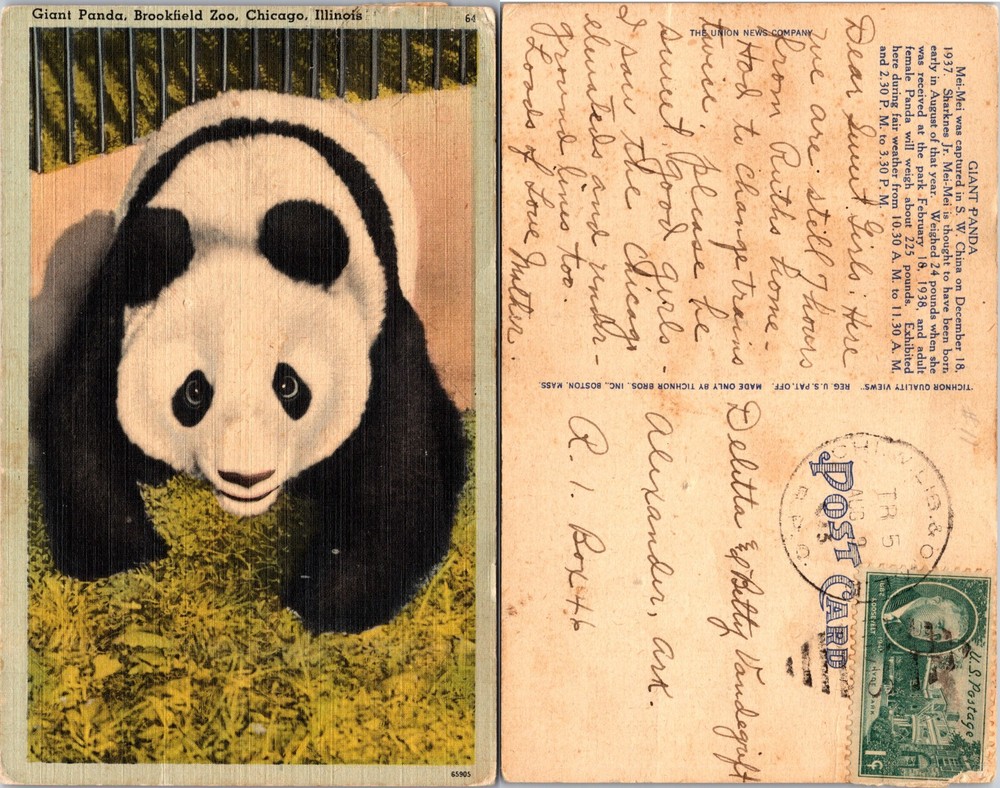 Giant Panda, Brookfield Zoo, Chicago, Illinois
64
65905
THE UNION NEWS COMPANY
GIANT PANDA
Mei-Mei was captured in S. W. China on December 18,
1937. Sharknes Jr. Mei-Mei is thought to have been born
early in August of that year. Weighed 24 pounds when she
was received at the park February 18, 1938, and adult
female Panda will weigh about 225 pounds. Exhibited
here during fair weather from 10.30 A. M. to 11.30 A. M.
and 2.30 P. M. to 3.30 P. M.
Dear Sweet Girls: Here
we are still 7 hours
from Ruths home-
Had to change trains
twice. please be
sweet, good girls -
I saw the Chicago
elevateds and under-
ground lines too.
Loads of Love Mother.
"TICHNOR QUALITY VIEWS." REG. U.S. PAT. OFF. MADE ONLY BY TICHNOR BROS., INC., BOSTON, MASS.
#17
POST CARD
TR 5
AUG 2
R.P.O.
U.S. Postage
ROOSEVELT
HYDE PARK
1¢
Delitta & Betty Vandegrift
Alexander, Ark.
R. 1. Box 44